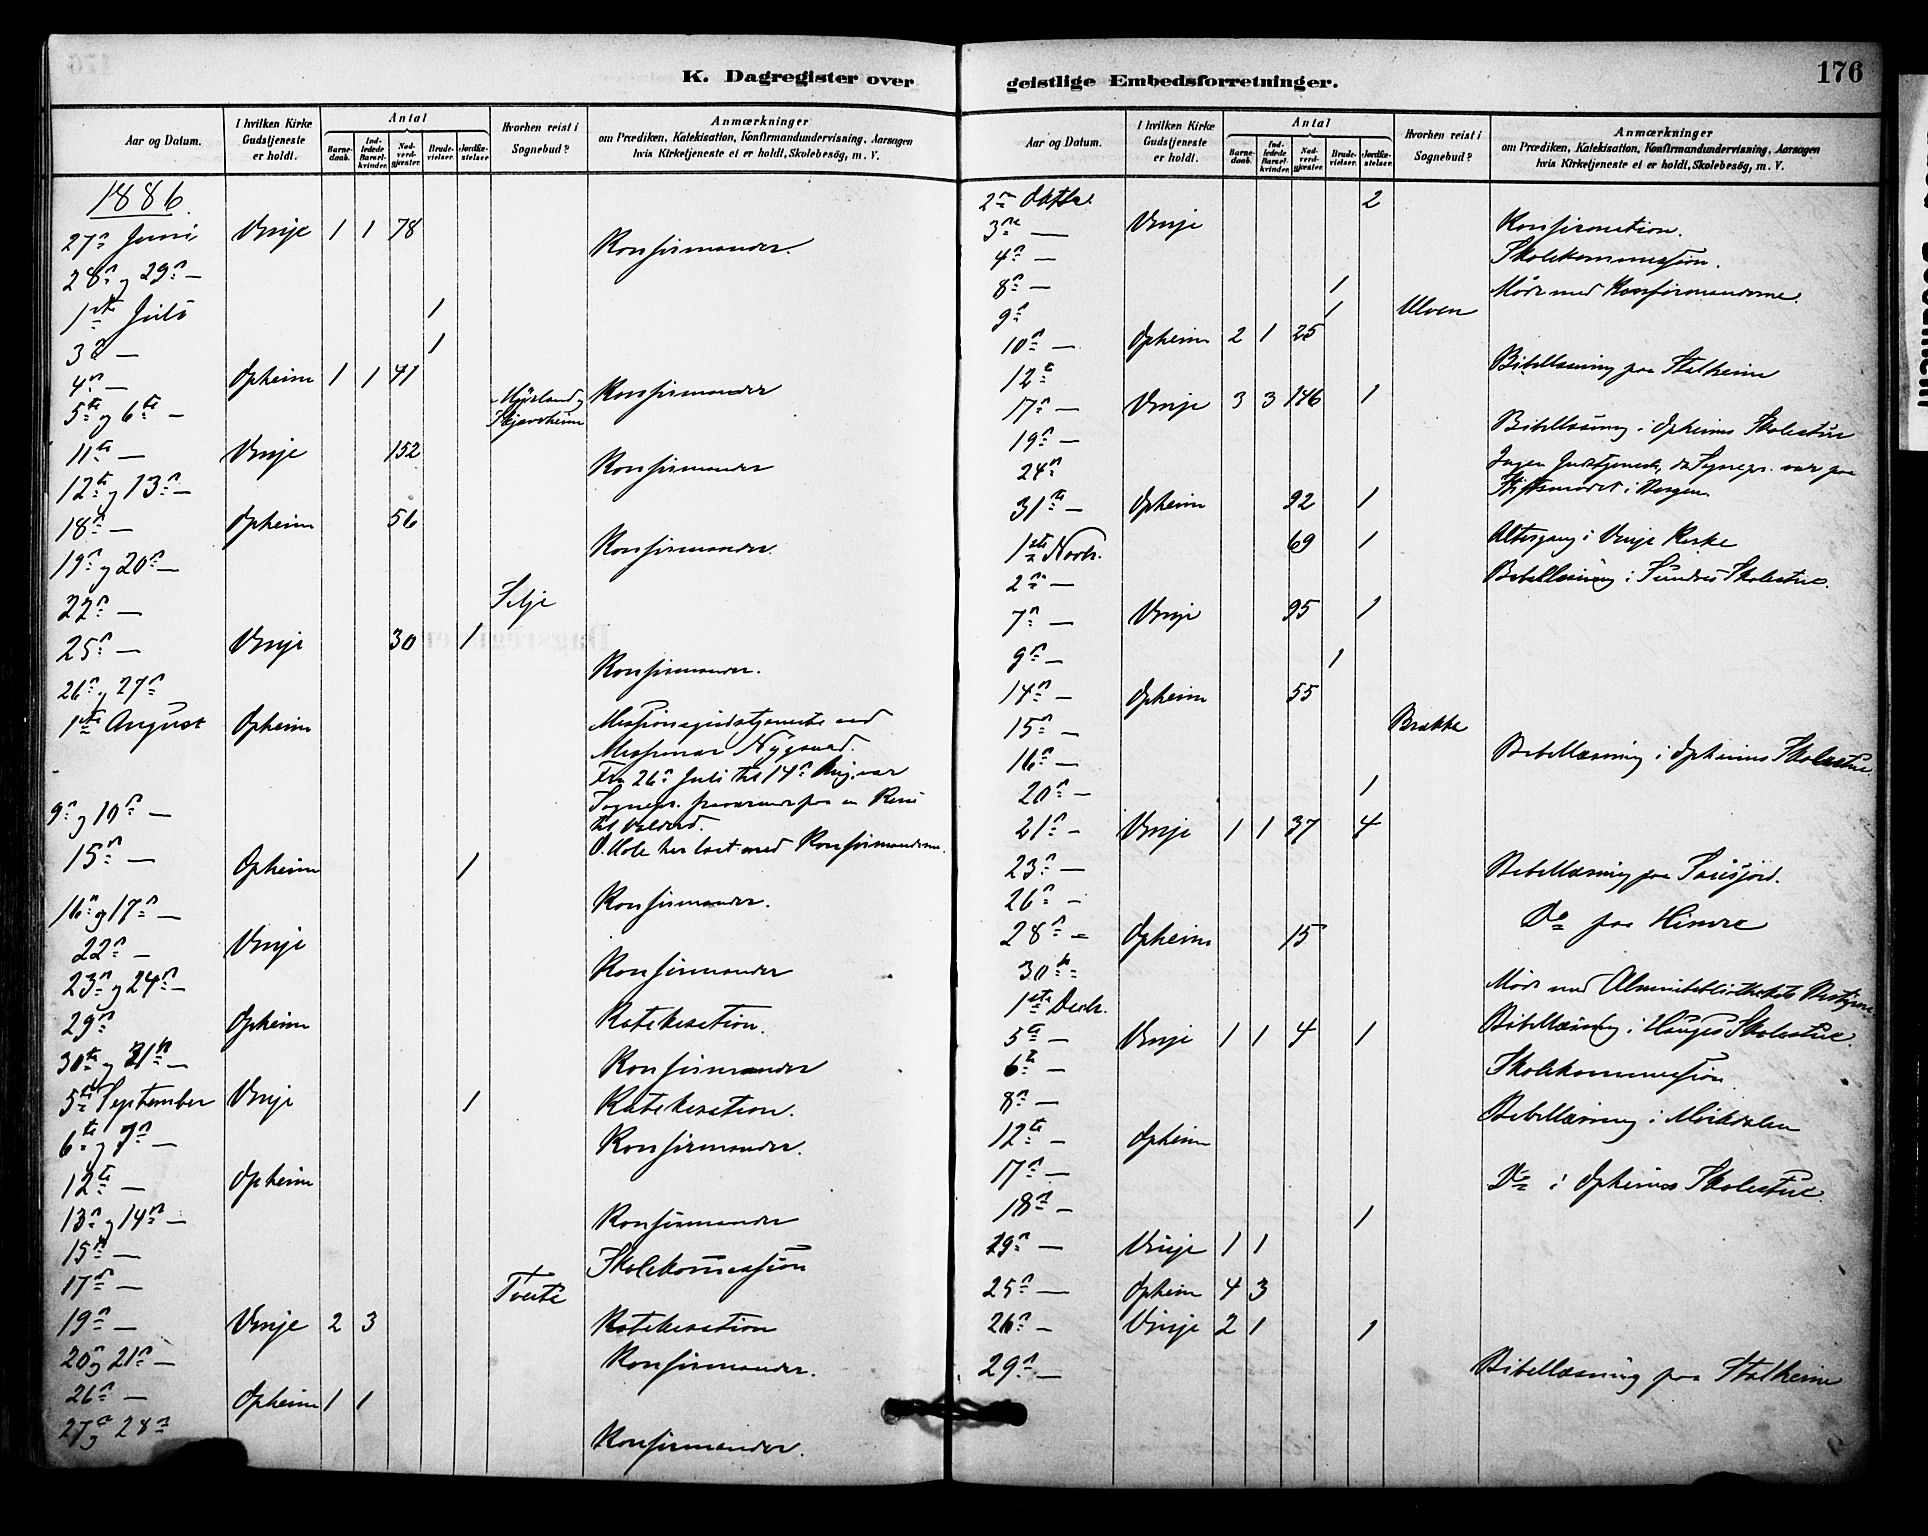 K. Dagregister over
Aar og Datum. I hvilken Kirke Gudstjeneste er holdt. Antal Barnedaab. Indledede Barselkvinder. Nadverdgjæster. Brudevielser. Jordfæstelser. Hvorhen reist i Sognebud? Anmærkninger om Prædiken, Katekisation, Konfirmandundervisning, Aarsagen hvis Kirketjeneste ei er holdt, Skolebesög, m. V.
1886.
27n Juni Vinje 1 1 78
28n og 29n — Konfirmander.
1ste Juli 1
3n — 1
4n — Opheim 1 1 41
5te og 6te — Konfirmander
11te — Vinje 152
12te og 13n — Konfirmander
18n — Opheim 56
19n og 20n — Konfirmander.
22n — Selje
25n — Vinje 30 1
26n og 27n Konfirmander.
1ste August Opheim Missionsgudstjeneste ved
Missionær Nygaard.
Fra 26n Juli til 14n Aug. var
Sognepr. fraværende paa en Reise
til Valders.
9n og 10n — har læst med Konfirmanderne.
15n — Opheim 1
16n og 17n — Konfirmander.
22n — Vinje
23n og 24n — Konfirmander
29n Opheim Katekisation.
30te og 31te — Konfirmander
5te September Vinje 1 Katekisation.
6te og 7n — Konfirmander.
12te — Opheim
13n og 14n — Konfirmander
15n — Skolekommission
17n — Tveite
19n — Vinje 2 3 Katekisation
20 og 21n — Konfirmander.
26n — Opheim 1 1
27n og 28n Konfirmander.
geistlige Embedsforretninger.
176
Aar og Datum. I hvilken Kirke Gudstjeneste er holdt. Antal Barnedaab. Indledede Barselkvinder. Nadverdgjæster. Brudevielser. Jordfæstelser. Hvorhen reist i Sognebud? Anmærkninger om Prædiken, Katekisation, Konfirmandundervisning, Aarsagen hvis Kirketjeneste ei er holdt, Skolebesög, m. V.
2n Oktbr. 2
3n — Vinje Konfirmation.
4n — Skolekommission.
8n — 1 Møde med Konfirmanderne.
9n 1 Ulven
10n — Opheim 2 1 25
12te Bibellæsning paa Stalheim
17n — Vinje 3 3 146 1
19n — Bibellæsning i Opheims Skolestue
24n Ingen Gudstjeneste, da Sognepr. var paa
Stiftsmødet i Bergen.
31te — Opheim 92 1
1ste Novbr. 69 1 Altergang i Vinje Kirke
2n — Bibellæsning i Sundves Skolestue.
7n — Vinje 95 1
9n — 1
14n — Opheim 55
15n — Brække
16n — Bibellæsning i Opheims Skolestue
20n — 1
21n — Vinje 1 1 37 4
23n — Bibellæsning paa
26n — Do paa Hirdre
28n — Opheim 15
30te — Møde med Almuebibliothekets Bestyrere
1ste Decbr. Bibellæsning i Hauges Skolestue.
5te — Vinje 1 1 4 1
6te — Skolekommission
8n — Bibellæsning i
12te — Opheim
17n — Do i Opheims Skolestue
18n — 1
19n — Vinje 1 1
25n — Opheim 4 3
26n — Vinje 2 1 1
29n — Bibellæsning paa Stalheim